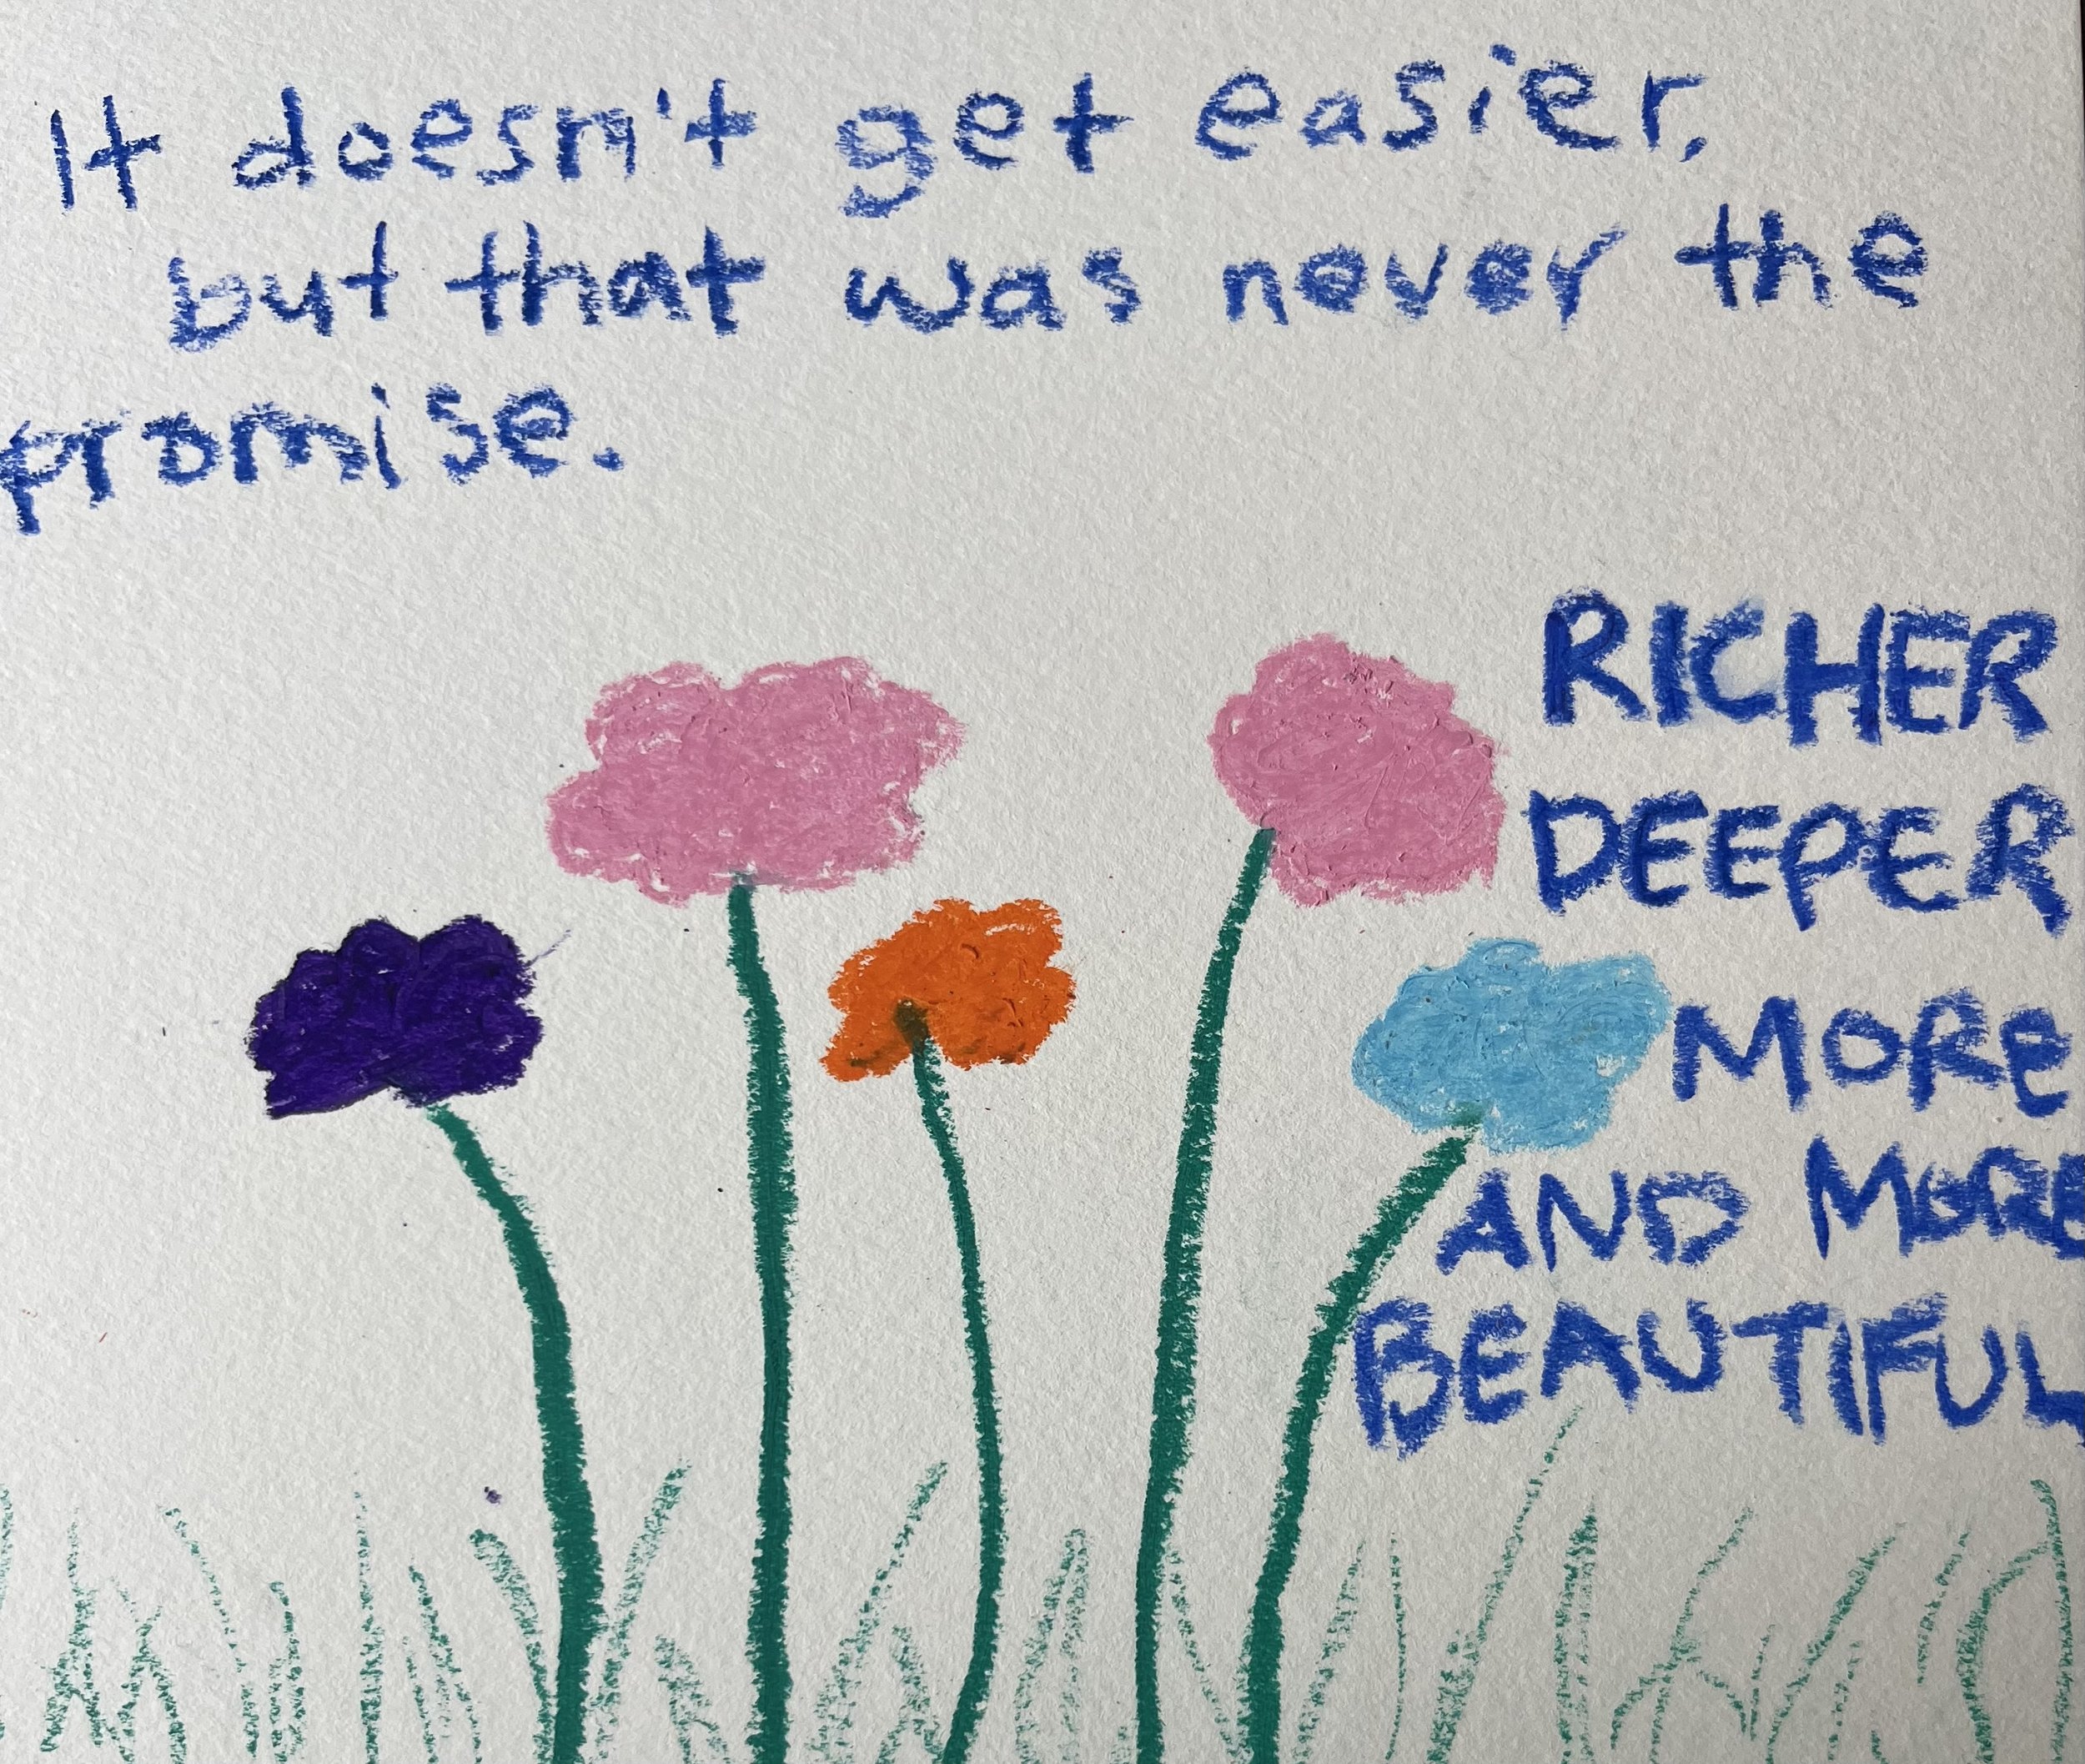 It doesn't get easier,
but that was never the
promise.
RICHER
DEEPER
MORE
AND MORE
BEAUTIFUL